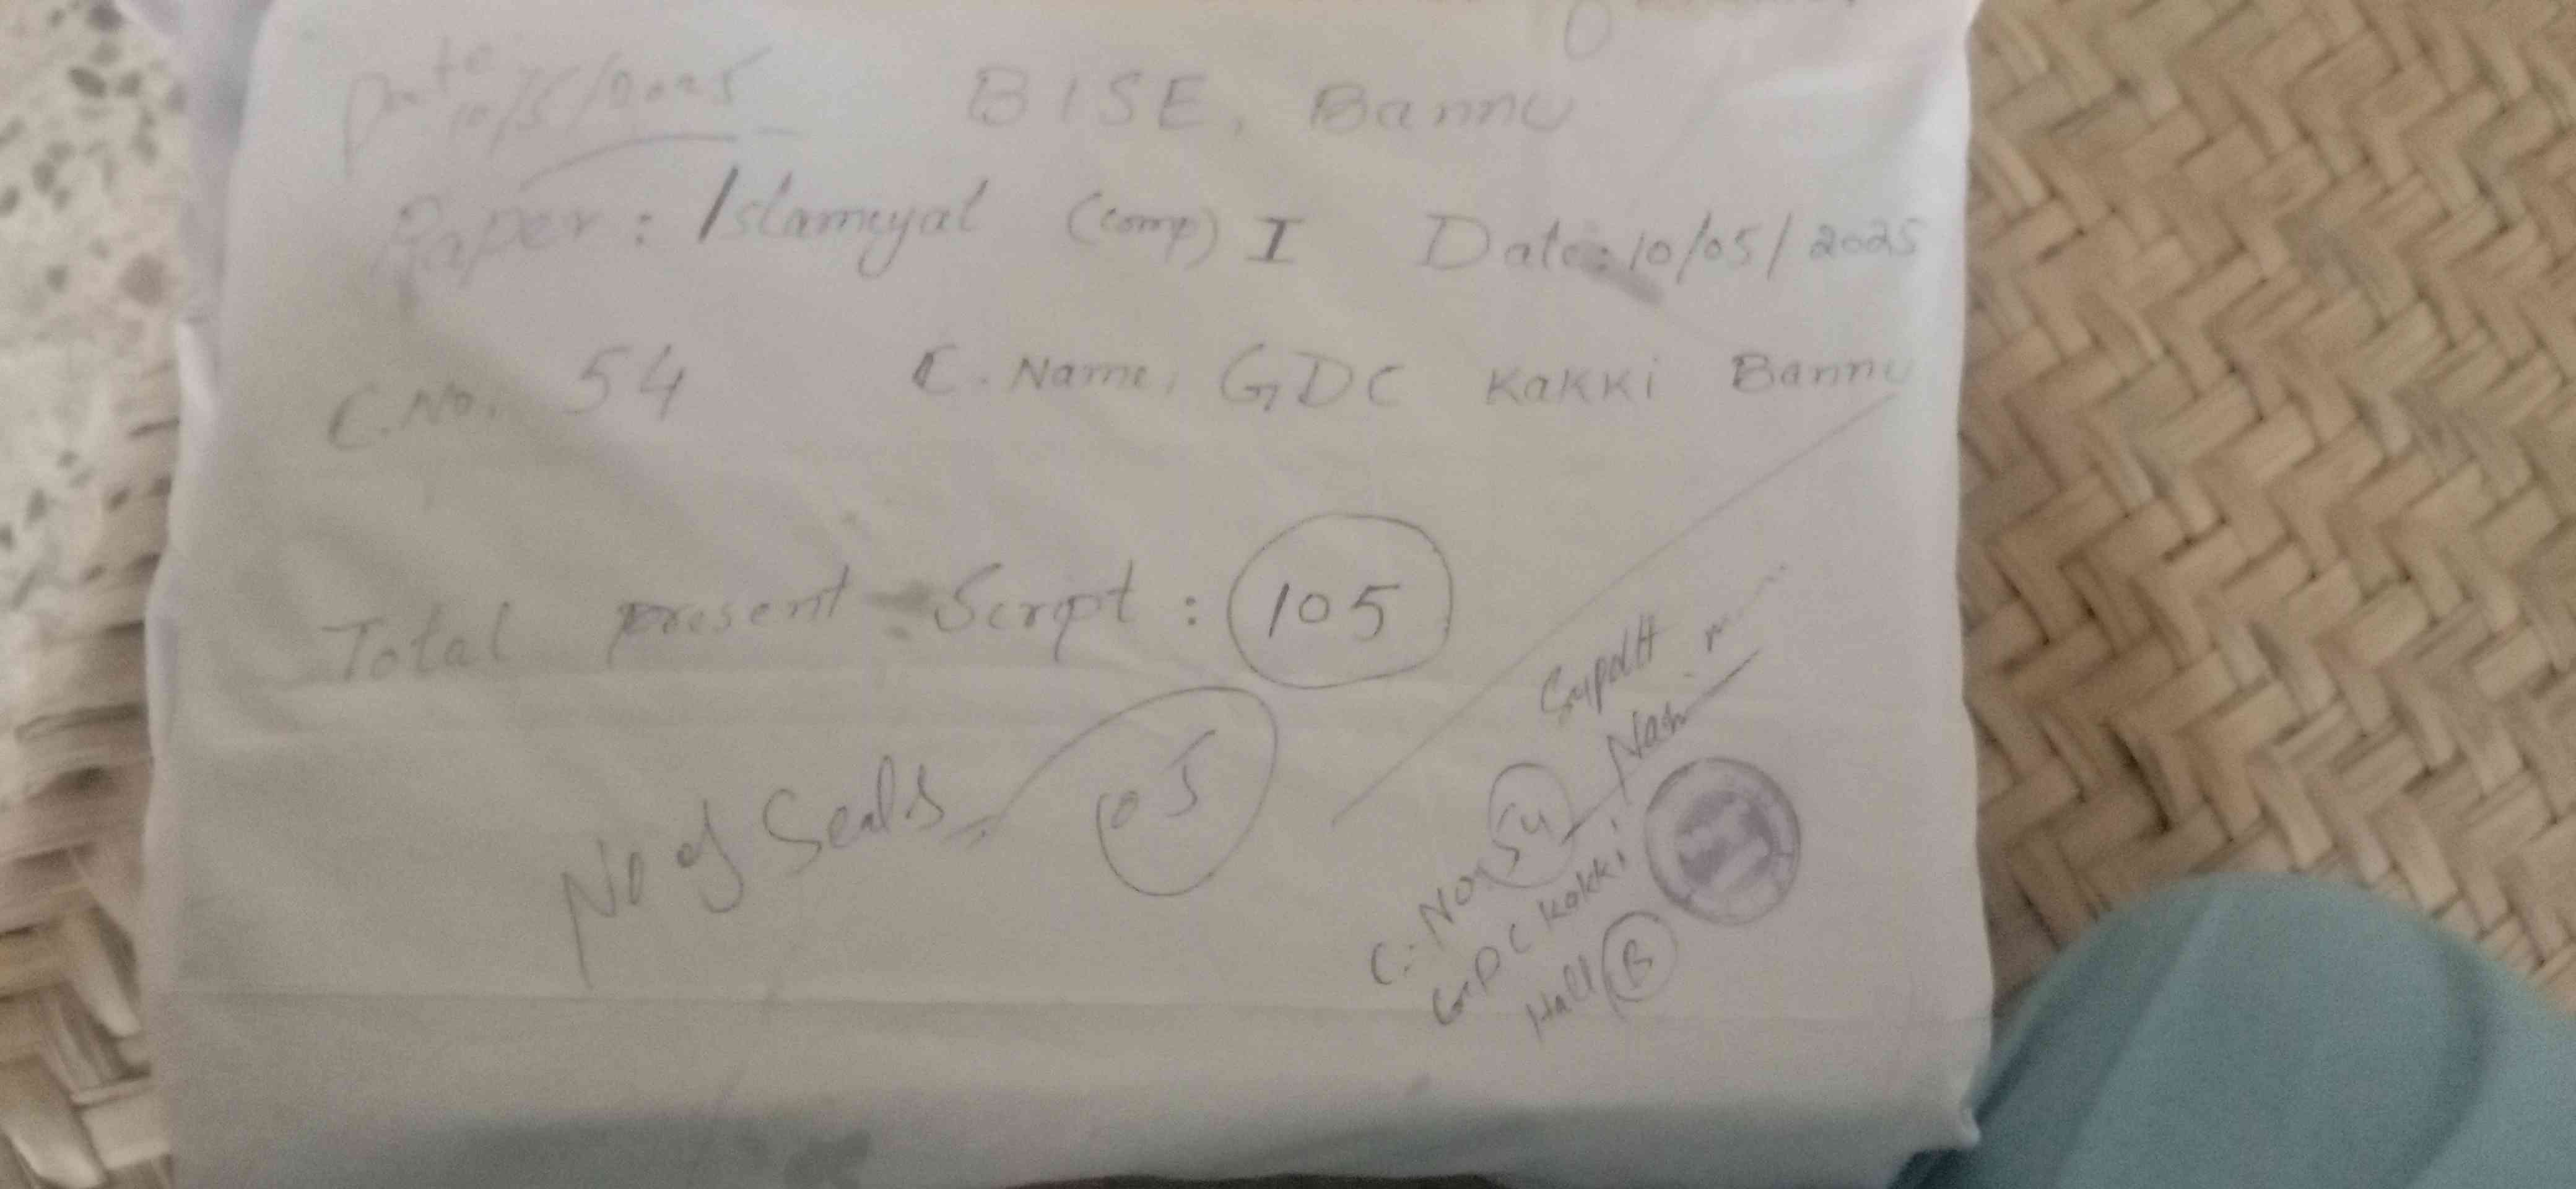 Date 10/5/2025
BISE, Bannu
Paper: Islameyat (comp) I Date: 10/05/2025
C.No. 54 C. Name, GDC KaKKi Bannu
Total present Script: 105
No of Seals. 05
Supdtt
C. No. 54
GDC Kakki
Hall B